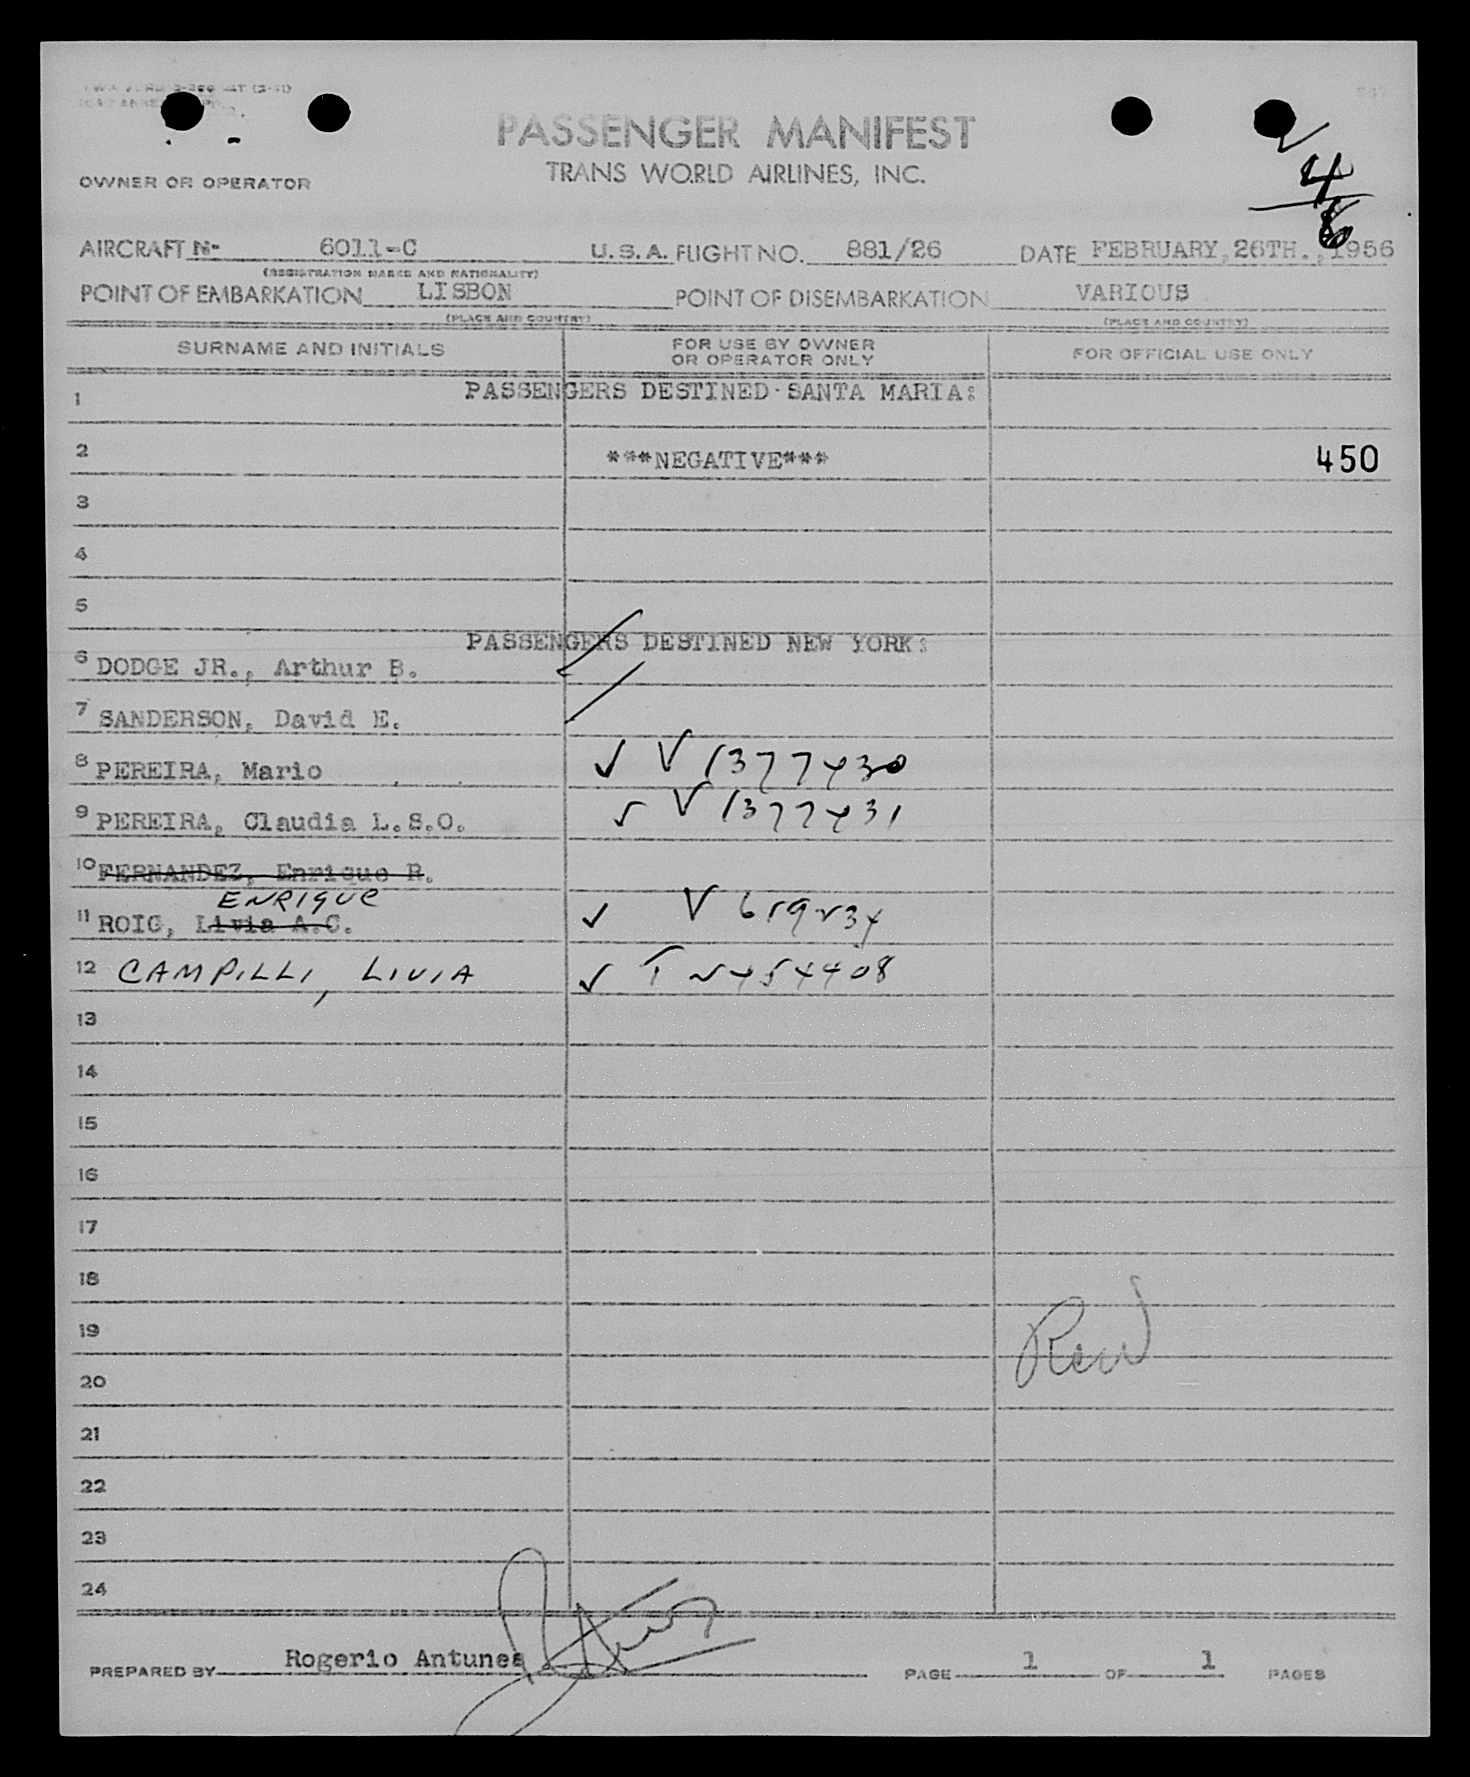 PASSENGER MANIFEST
TRANS WORLD AIRLINES, INC.
OWNER OR OPERATOR
4
6
AIRCRAFT N- 6011-C U.S.A. FLIGHT NO. 881/26 DATE FEBRUARY, 26TH., 1956
(REGISTRATION MARKS AND NATIONALITY)
POINT OF EMBARKATION LISBON POINT OF DISEMBARKATION VARIOUS
(PLACE AND COUNTRY) (PLACE AND COUNTRY)
SURNAME AND INITIALS FOR USE BY OWNER OR OPERATOR ONLY FOR OFFICIAL USE ONLY
1 PASSENGERS DESTINED SANTA MARIA:
2 ***NEGATIVE*** 450
3
4
5
PASSENGERS DESTINED NEW YORK:
6 DODGE JR., Arthur B.
7 SANDERSON, David E.
8 PEREIRA, Mario ✓ V 1377430
9 PEREIRA, Claudia L.S.O. ✓ V 1377431
10 FERNANDEZ, Enrique R.
ENRIQUE
11 ROIG, Livia A.C. ✓ V 619234
12 CAMPILLI, LIVIA ✓ T 2454408
13
14
15
16
17
18
19
20
21
22
23
24
PREPARED BY Rogerio Antunes PAGE 1 OF 1 PAGES